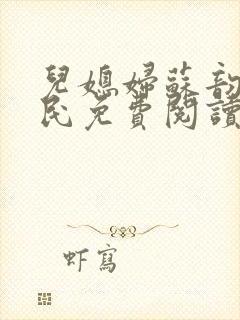 兒媳婦蘇韵
民免費閱讀
虾寫